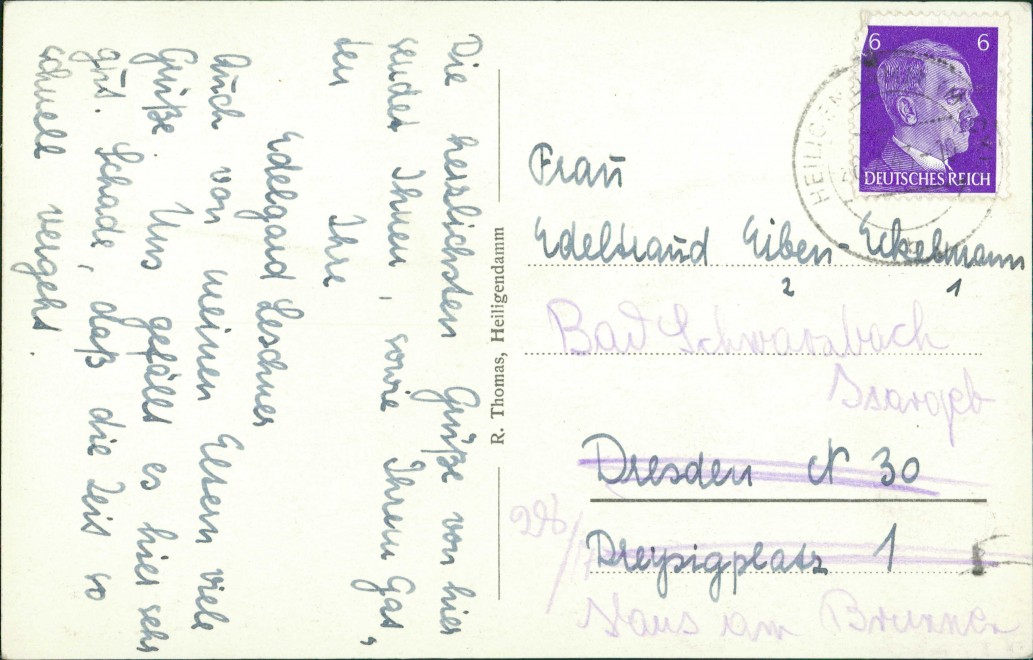 Die herzlichsten Grüße von hier
sendet Ihnen, sowie Ihrem Gat,
ten Ihre
Edelgard Leschner
Auch von meinen Eltern viele
Grüße. Uns gefällt es hier sehr
gut. Schade, daß die Zeit so
schnell vergeht.
R. Thomas, Heiligendamm
6 6
DEUTSCHES REICH
HEILIGEN
Frau
Edeltraud Eiben-Eckelmann
2 1
Bad Schwarzbach
Isargeb
Dresden N 30
Dreysigplatz 1
Haus am Brunnen